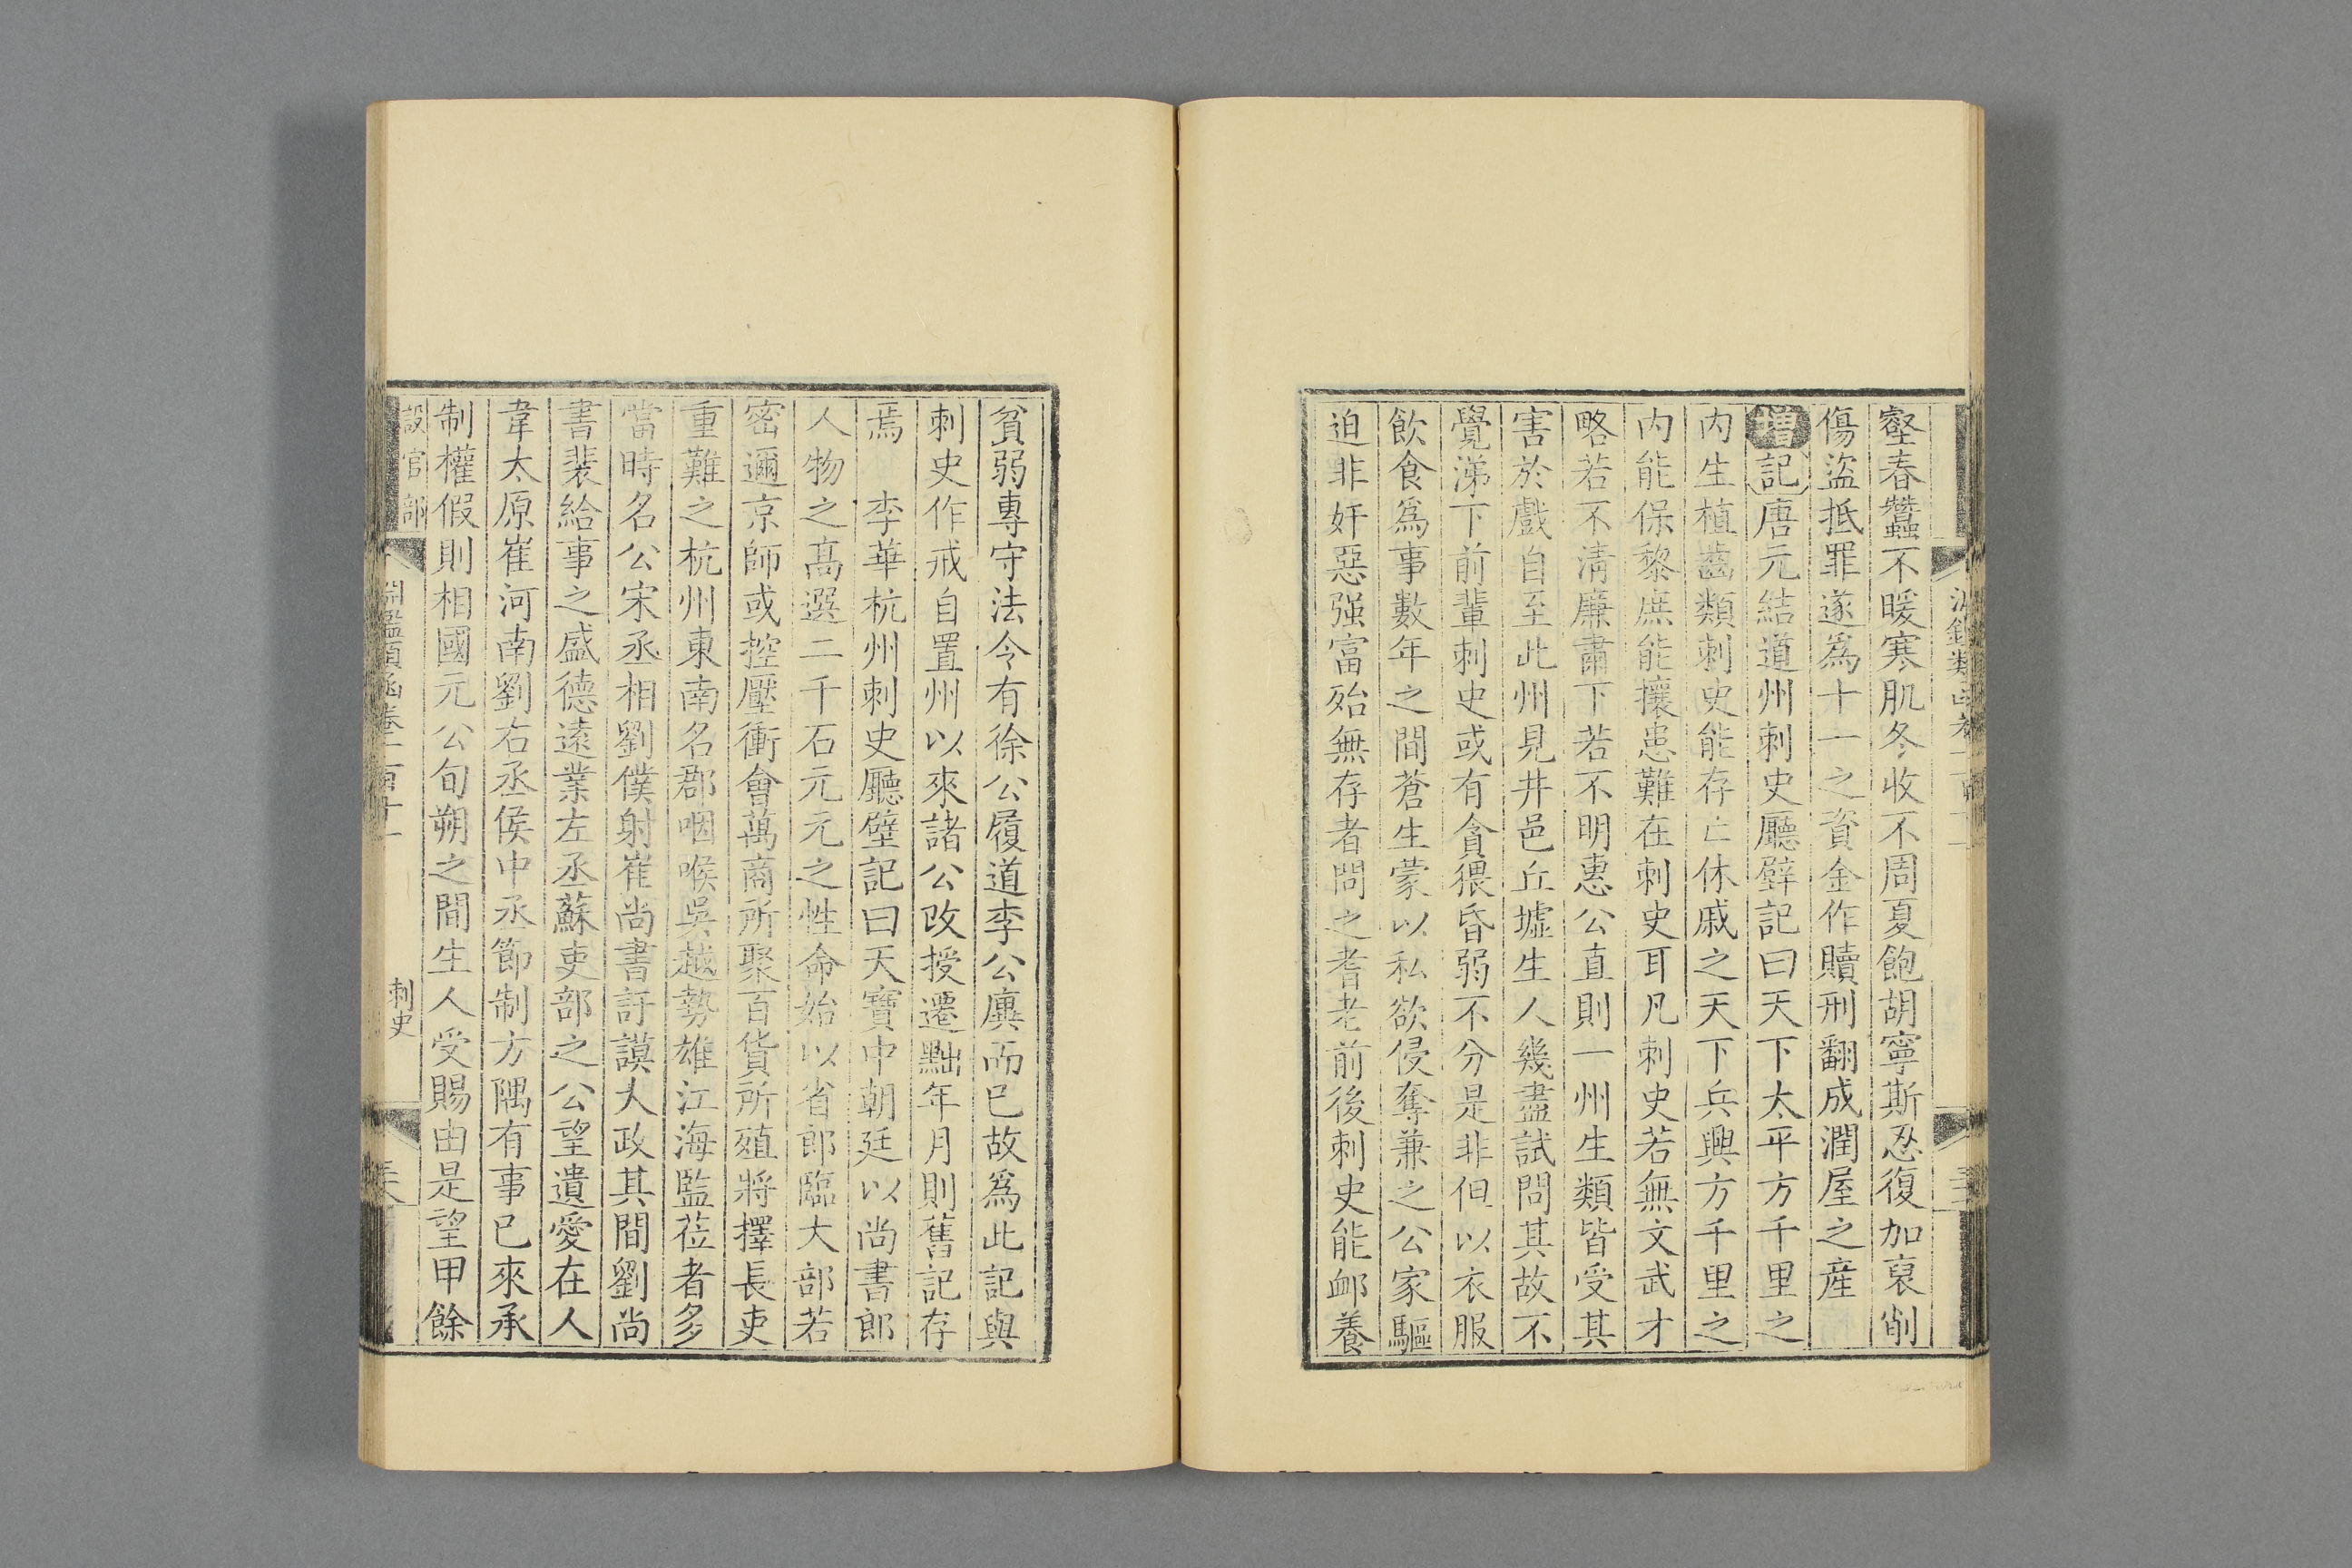 壑春蠶不暖寒肌冬收不周夏飽胡寧斯忍復加裒削
傷盜抵罪遂爲十一之資金作贖刑翻成潤屋之産
增記唐元結道州刺史廳壁記曰天下太平方千里之
内生植齒類刺史能存亡休戚之天下兵興方千里之
内能保黎庶能攘患難在刺史耳凡刺史若無文武才
略若不淸廉肅下若不明惠公直則一州生類皆受其
害於戲自至此州見井邑丘墟生人幾盡試問其故不
覺涕下前輩刺史或有貪猥昏弱不分是非但以衣服
飲食爲事數年之間蒼生蒙以私欲侵奪兼之公家驅
迫非奸惡强富殆無存者問之耆老前後刺史能䘏養
貧弱專守法令有徐公履道李公廙而已故爲此記與
刺史作戒自置州以來諸公改授遷黜年月則舊記存
焉 李華杭州刺史廳壁記曰天寶中朝廷以尚書郎
人物之高選二千石元元之性命始以省郎臨大部若
密邇京師或控壓衝會萬商所聚百貨所殖將擇長吏
重難之杭州東南名郡咽喉吳越勢雄江海監莅者多
當時名公宋丞相劉僕射崔尚書訏謨大政其間劉尚
書裴給事之盛德遠業左丞蘇吏部之公望遺愛在人
韋太原崔河南劉右丞侯中丞節制方隅有事已來承
制權假則相國元公旬朔之間生人受賜由是望甲餘
設官部
淵鑑類函卷一百十一
刺史